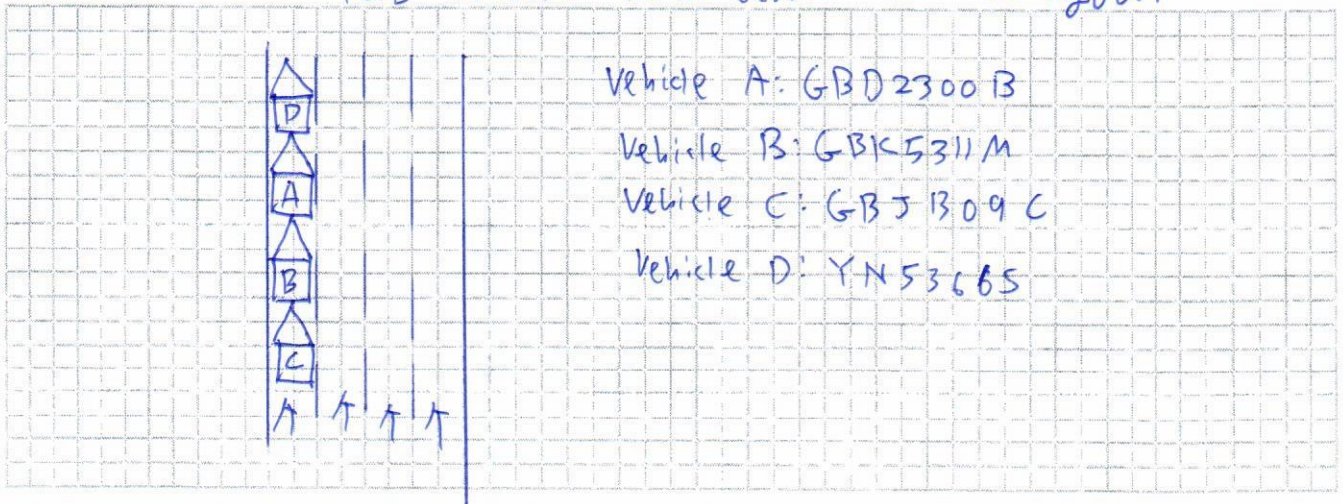 D
A
B
C
Vehicle A: GBD2300B
Vehicle B: GBK5311M
Vehicle C: GBJB09C
Vehicle D: YN5366S